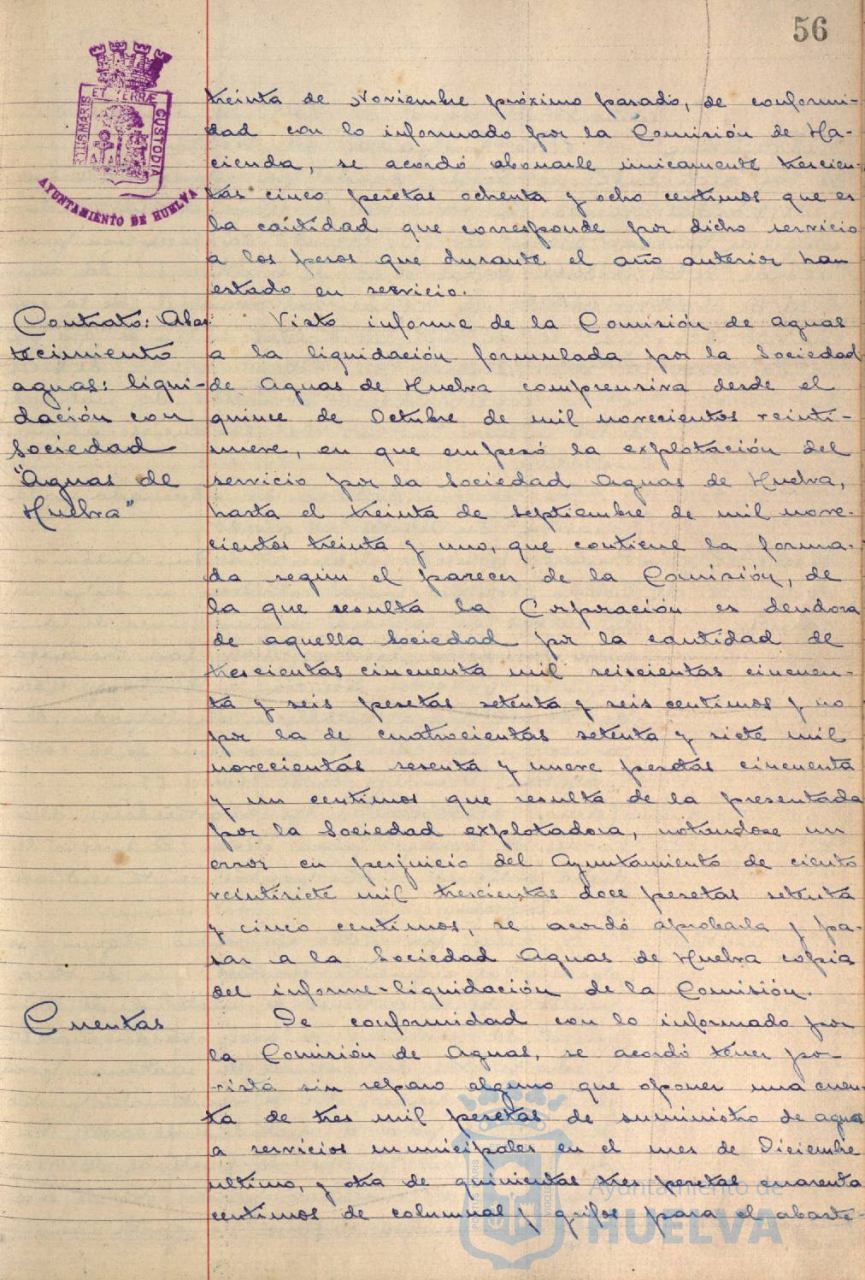 56
PORTUS MARIS ET TERRAE CUSTODIA
AYUNTAMIENTO DE HUELVA
treinta de Noviembre próximo pasado, de conformi-
dad con lo informado por la Comisión de Ha-
cienda, se acordó abonarle únicamente trescien-
tas cinco pesetas ochenta y ocho centimos que es
la cantidad que corresponde por dicho servicio
a los pesos que durante el año anterior han
estado en servicio.
Contrato: Abas-
tecimiento
aguas: liqui-
dación con
Sociedad
"Aguas de
Huelva"
Visto informe de la Comisión de Aguas
a la liquidación formulada por la Sociedad
de Aguas de Huelva comprensiva desde el
quince de Octubre de mil novecientos veinti-
nueve, en que empezó la explotación del
servicio por la Sociedad Aguas de Huelva,
hasta el treinta de septiembre de mil nove-
cientos treinta y uno, que contiene la forma-
da según el parecer de la Comisión, de
la que resulta la Corporación es deudora
de aquella Sociedad por la cantidad de
trescientas cincuenta mil seiscientas cincuen-
ta y seis pesetas setenta y seis centimos y no
por la de cuatrocientas setenta y siete mil
novecientas sesenta y nueve pesetas cincuenta
y un centimos que resulta de la presentada
por la Sociedad explotadora, notandose un
error en perjuicio del Ayuntamiento de ciento
veintisiete mil trescientas doce pesetas setenta
y cinco centimos, se acordó aprobarla y pa-
sar a la Sociedad Aguas de Huelva copia
del informe-liquidación de la Comisión.
Cuentas
De conformidad con lo informado por
la Comisión de Aguas, se acordó tener por
vista sin reparo alguno que oponer una cuen-
ta de tres mil pesetas de suministro de agua
a servicios municipales en el mes de Diciembre
ultimo, y otra de quinientas tres pesetas cuarenta
centimos de columnas y grifos para el abaste-
Ayuntamiento de
HUELVA